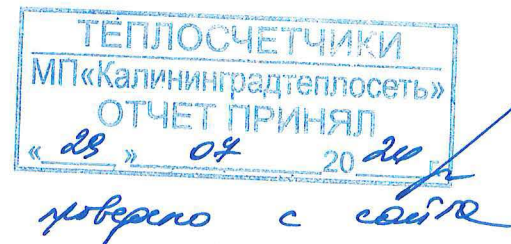 ТЕПЛОСЧЕТЧИКИ
МП«Калининградтеплосеть»
ОТЧЕТ ПРИНЯЛ
«29» 07 2024 г.
проверено с сайта